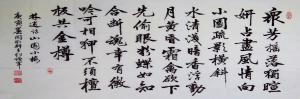 眾芳摇落獨暄
妍占盡風情向
小園疏影横斜
水清淺暗香浮動
月黄昏霜禽欲下
先偷眼粉蝶如知
合断魂幸有微
吟可相狎不須檀
板共金樽
林逋詩山園小梅
庚寅